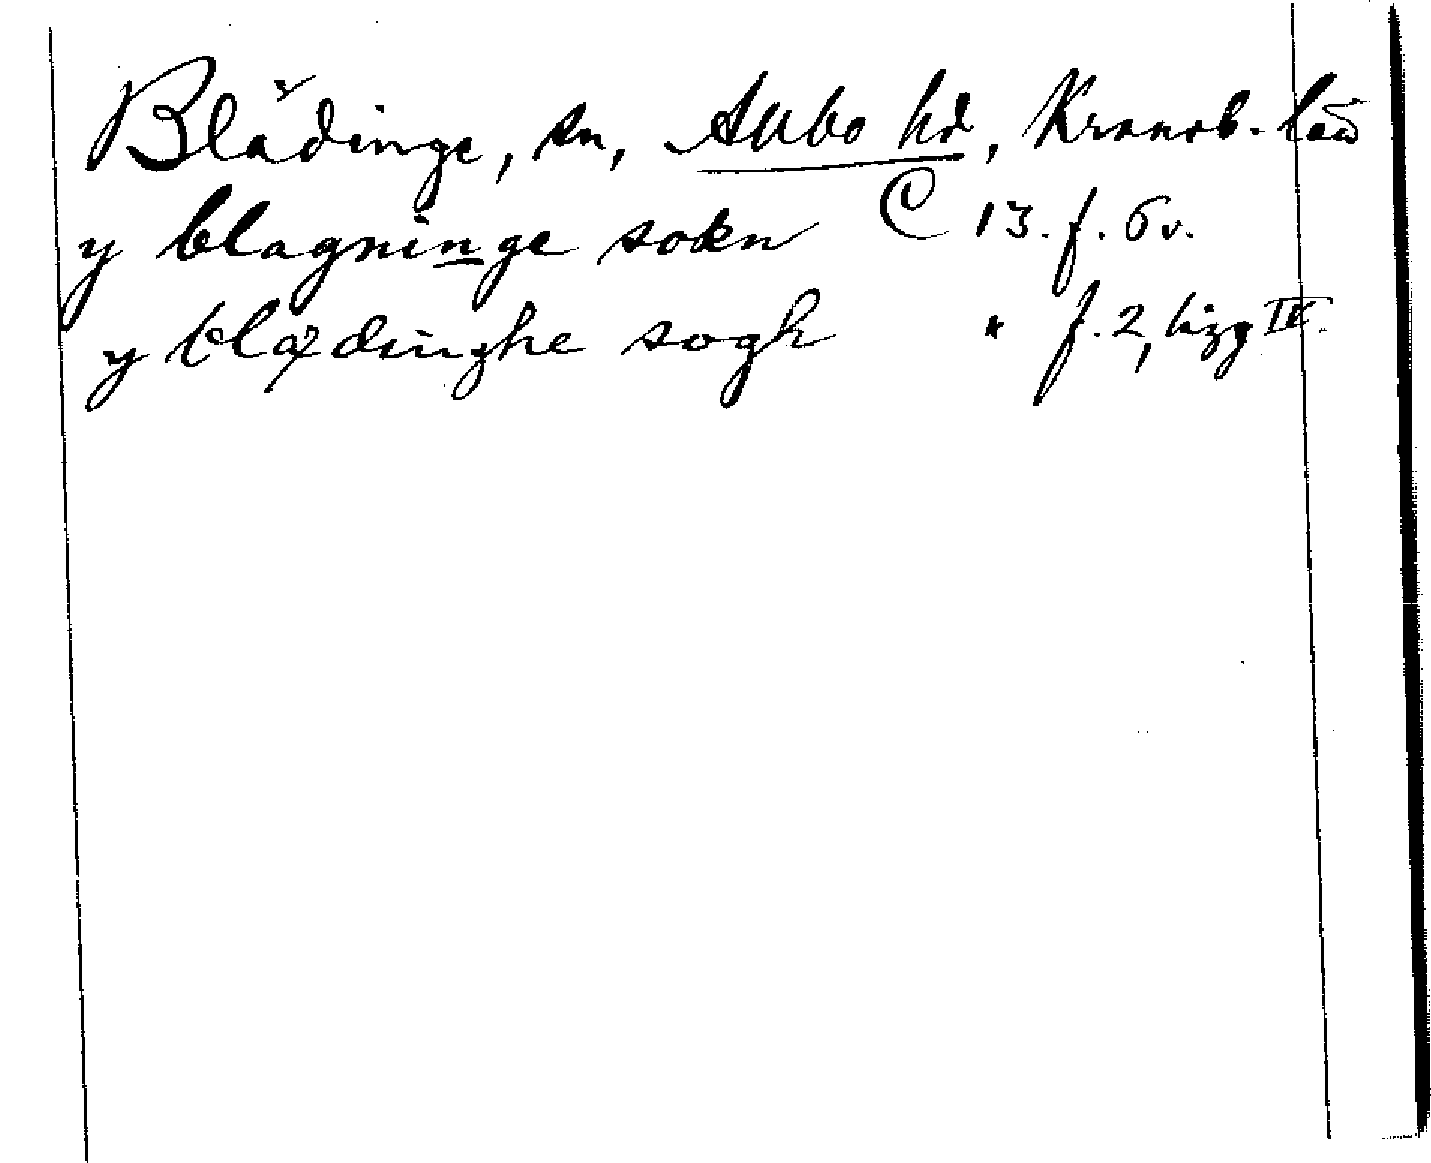 Blädinge, sn, Allbo hd, Kronob. län
y blagninge sokn C 13. f. 6v.
y blædinghe sogh " f. 2, lägg IV.